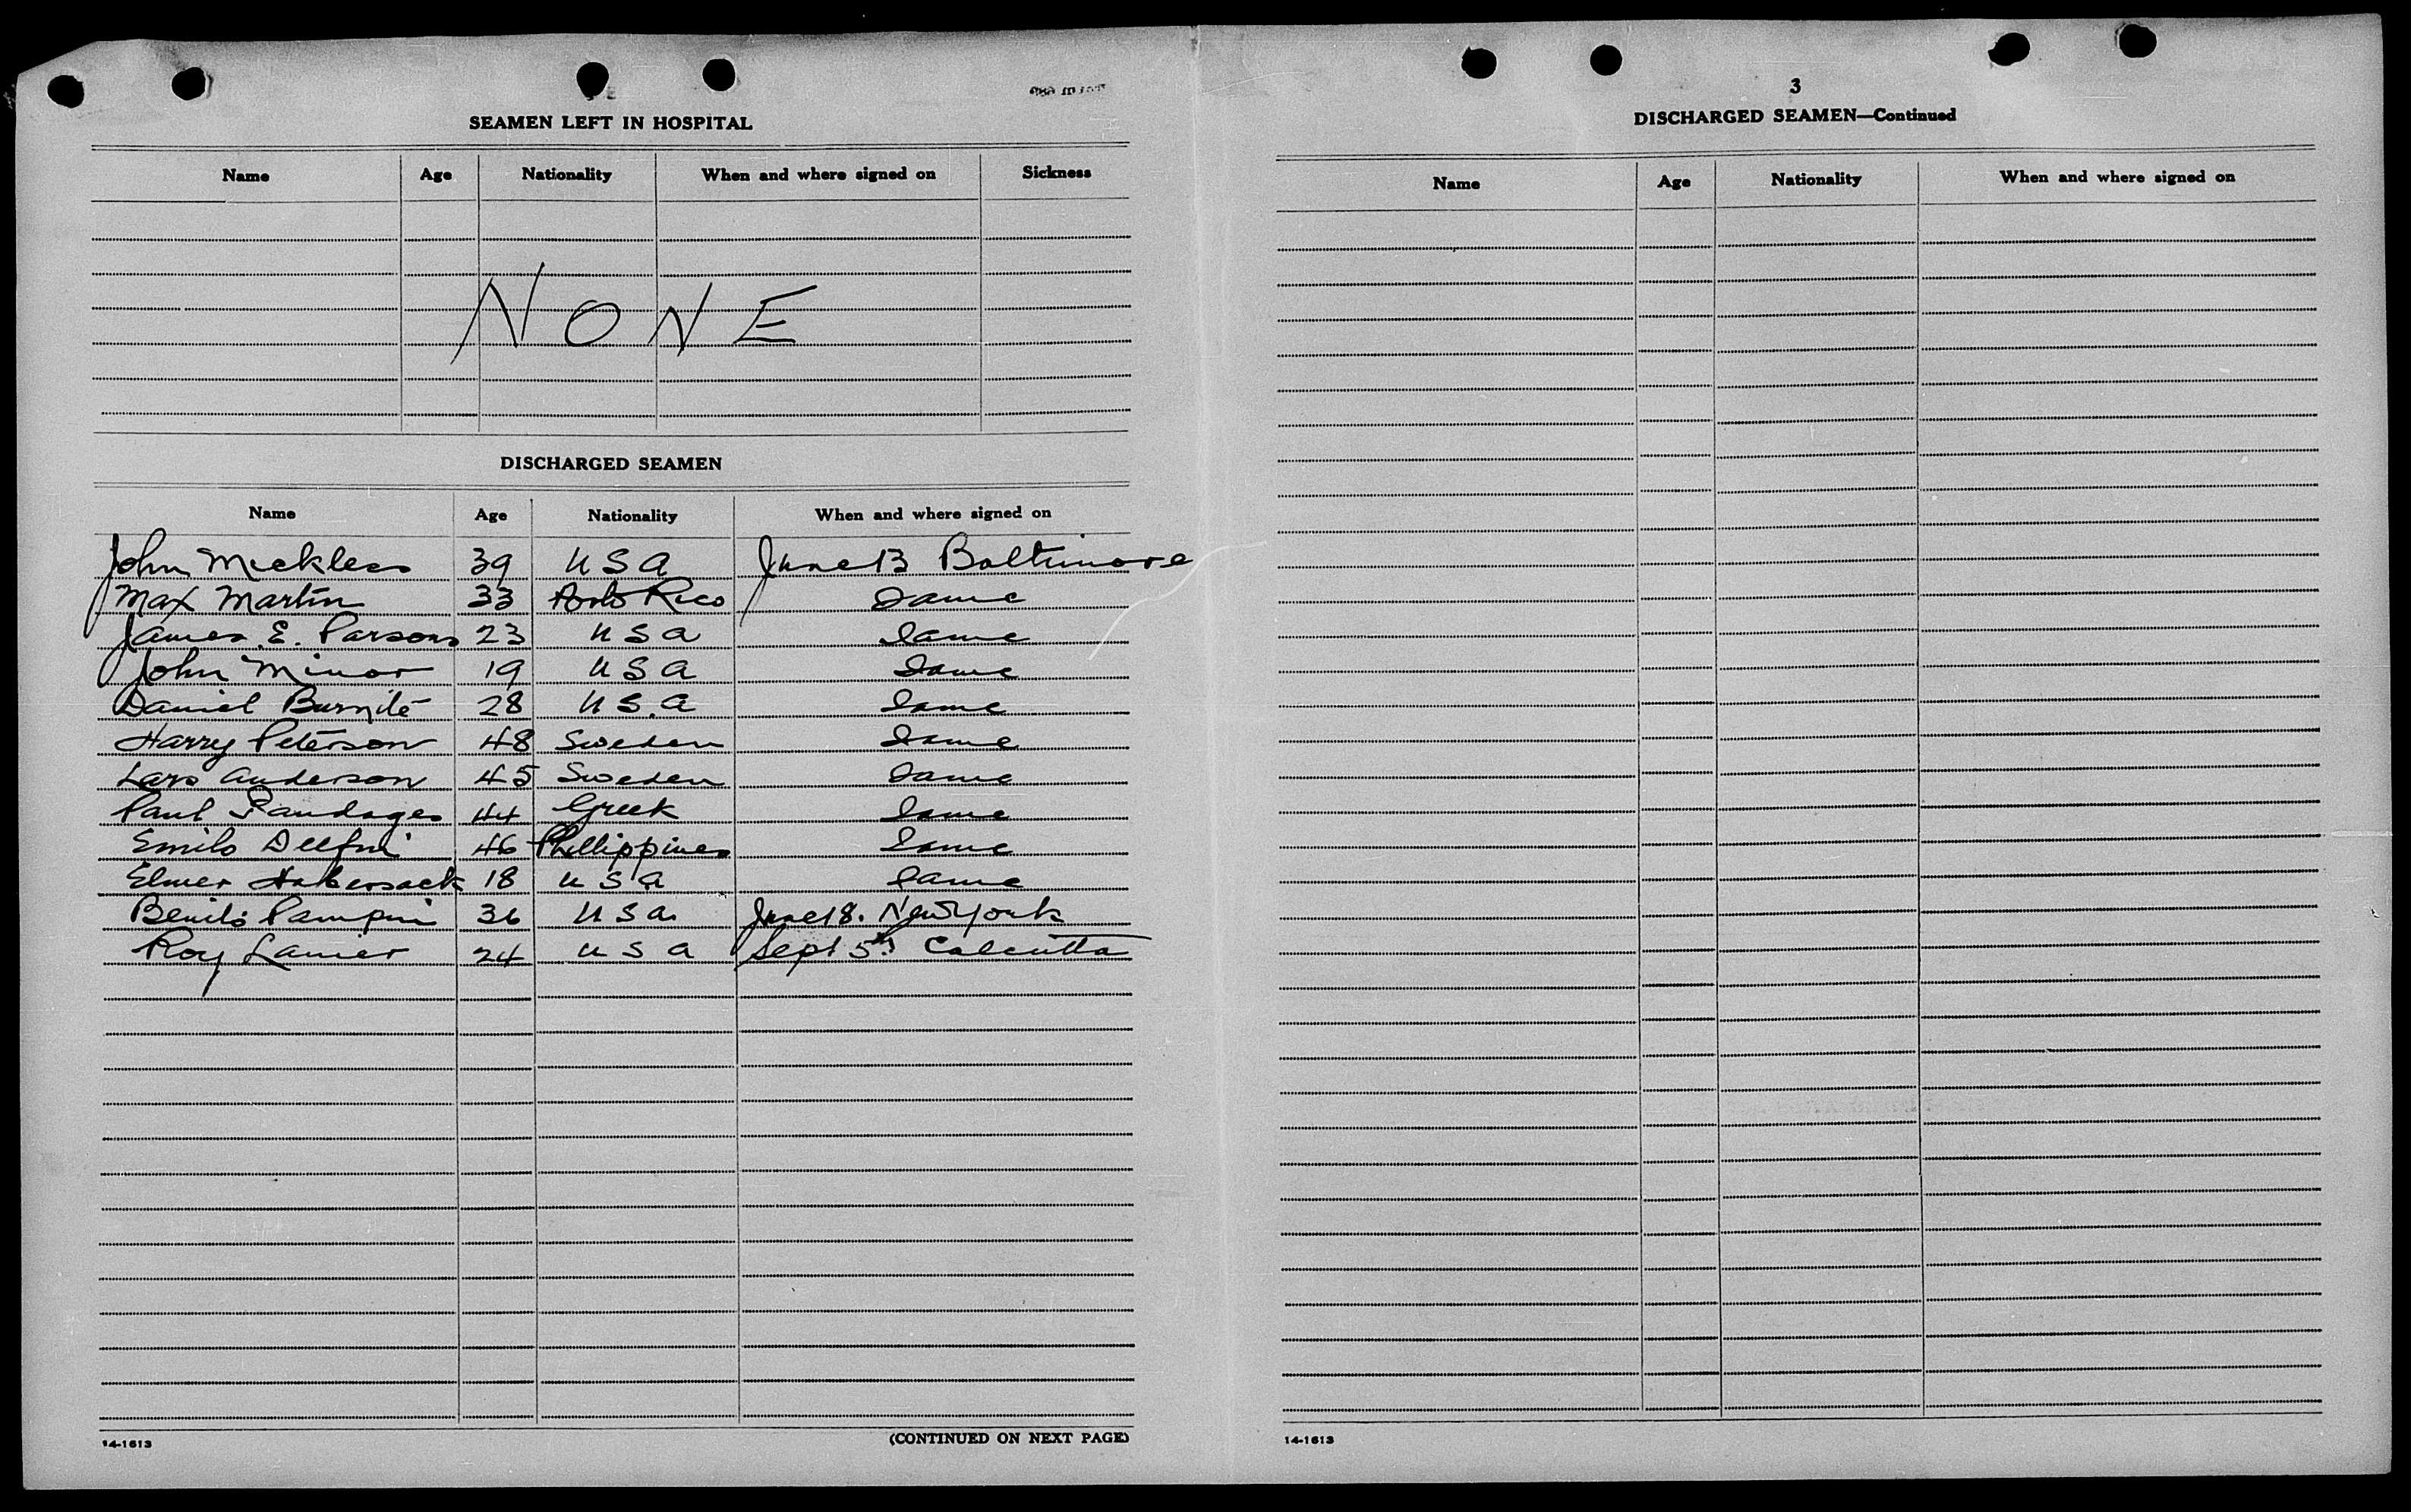 SEAMEN LEFT IN HOSPITAL
Name Age Nationality When and where signed on Sickness
NONE
DISCHARGED SEAMEN
Name Age Nationality When and where signed on
John 39 USA June 13 Baltimore
Max Martin 33 Porto Rico Same
James E. Parsons 23 USA Same
John Minor 19 USA Same
Daniel 28 U S. A Same
Harry Peterson 48 Sweden Same
Lars Anderson 45 Sweden Same
Paul 44 Greek Same
Emilo 46 Phillippines Same
Elmer Habersack 18 USA Same
Benito 36 USA June 18. New York
Roy Lanier 24 USA Sept 5th Calcutta
14-1613 (CONTINUED ON NEXT PAGE)
3
DISCHARGED SEAMEN—Continued
Name Age Nationality When and where signed on
14-1613